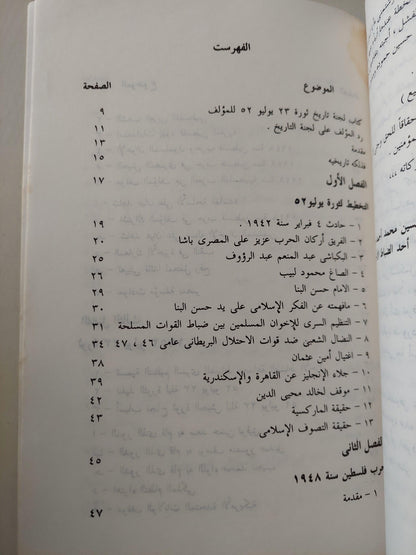 الفهرست
الموضوع الصفحة
كتاب لجنة تاريخ ثورة ٢٣ يوليو ٥٢ للمؤلف ٩
رد المؤلف على لجنة التاريخ . ١١
مقدمة ١٣
فذلكه تاريخيه ١٥
الفصل الأول ١٧
التخطيط لثورة يوليو٥٢
١ – حادث ٤ فبراير سنة ١٩٤٢ . ١٩
٢ – الفريق أركان الحرب عزيز على المصرى باشا ٢٠
٣ – البكباشى عبد المنعم عبد الرؤوف ٢٥
٤ – الصاغ محمود لبيب ٢٦
٥ – الامام حسن البنا ٢٩
٦ – مافهمته عن الفكر الإسلامى على يد حسن البنا ٣٠
٧ – التنظيم السرى للإخوان المسلمين بين ضباط القوات المسلحة ٣١
٨ – النضال الشعبى ضد قوات الاحتلال البريطانى عامى ٤٦ ، ٤٧ ٣٤
٩ – اغتيال أمين عثمان ٣٨
١٠ – جلاء الإنجليز عن القاهرة والإسكندرية ٣٩
١١ – موقف لخالد محيى الدين ٤٢
١٢ – حقيقة الماركسية ٤٣
١٣ – حقيقة التصوف الإسلامى
الفصل الثانى ٤٥
حرب فلسطين سنة ١٩٤٨
١ – مقدمة ٤٧